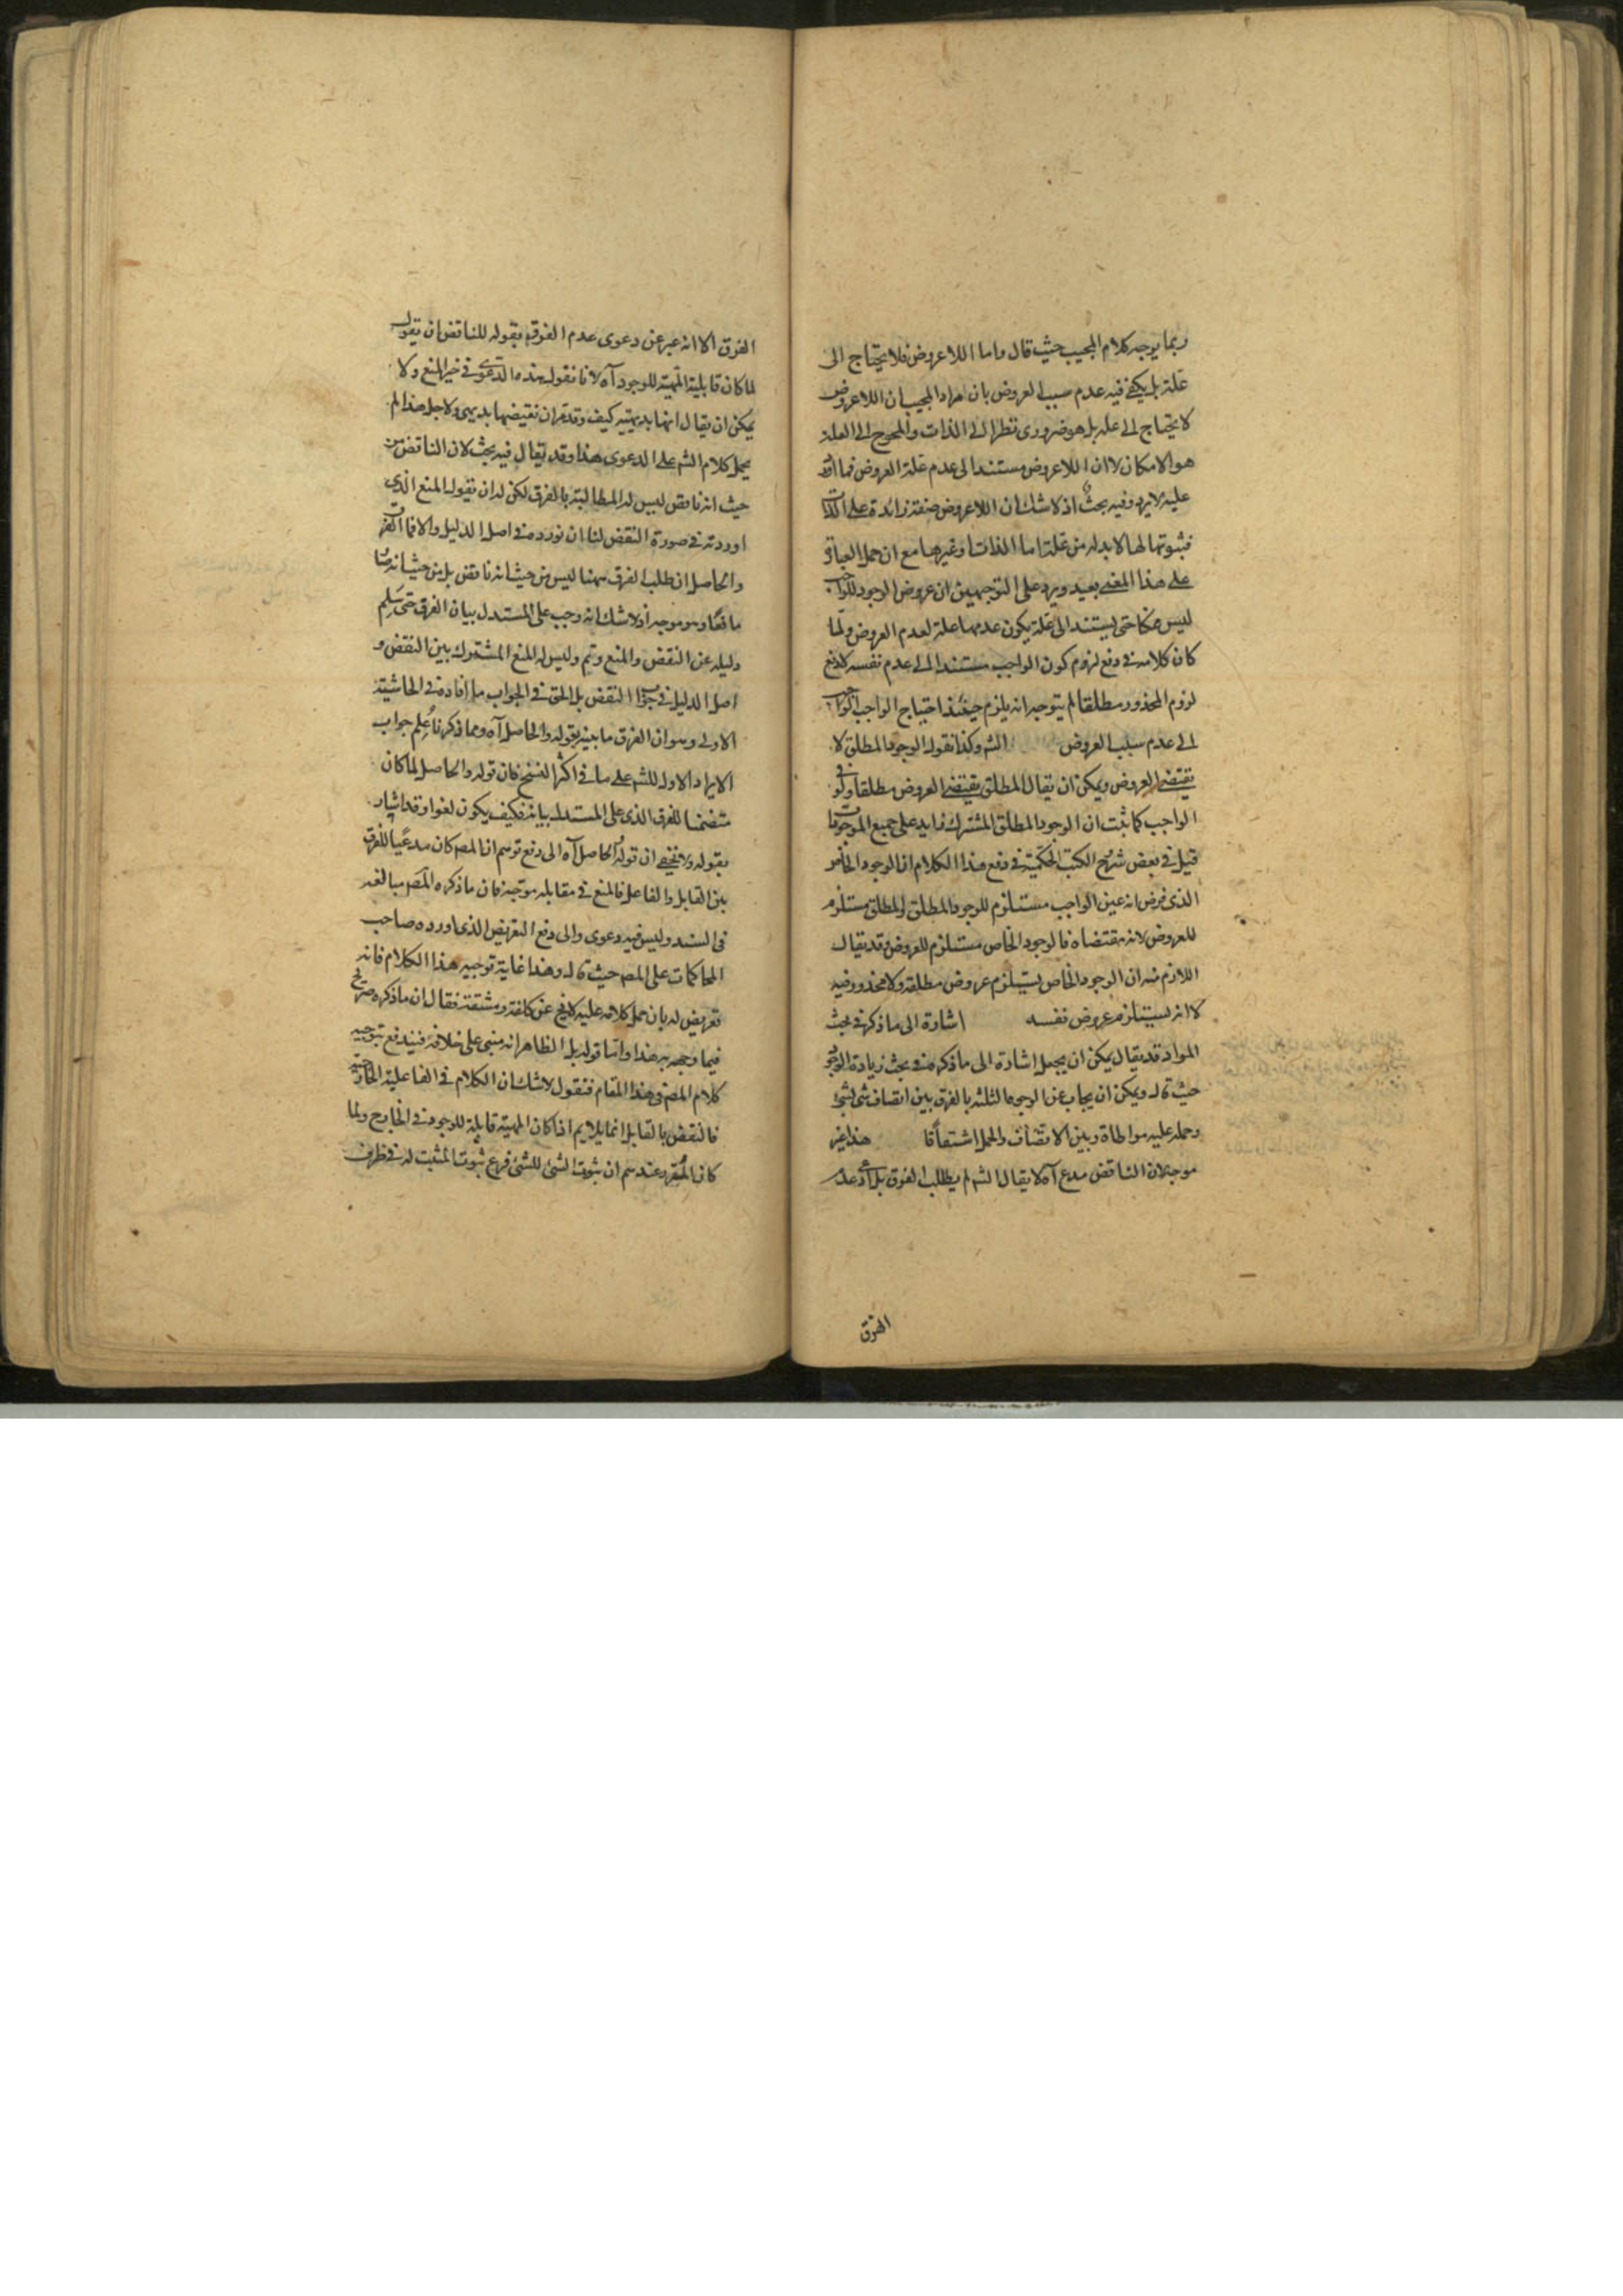 ربما يوجه كلام المجيب حيث قال واما اللاعروض فلا يحتاج الى
علة بل يكفى فيه عدم سبب العروض بان مراد المجيب ان اللاعروض
لا يحتاج الى علة بل هو ضرورى نظرا الى الذات والمحوج الى العلة
هو الامكان لا ان اللاعروض مستند الى عدم علة العروض فما اورد
عليه لا يرد وفيه بحث اذ لا شك ان اللاعروض صفة زائدة على الذات
فثبوتها لها لا بد له من علة اما الذات او غيرها مع ان حمل العبارة
على هذا المعنى بعيد ويرد على التوجيهين ان عروض الوجود للواجب
ليس ممكنا حتى يستند الى علة يكون عدمها علة لعدم العروض ولما
كان كلامه فى دفع لزوم كون الواجب مستندا الى عدم نفسه لا دفع
لزوم المحذور مطلقا لم يتوجه انه يلزم حينئذ احتياج الواجب
الى عدم سبب العروض الش وكذا نقول الوجود المطلق لا
يقتضى العروض ويمكن ان يقال المطلق يقتضى العروض مطلقا ولو فى
الواجب كما ثبت ان الوجود المطلق المشترك زايد على جميع الموجودات
قيل فى بعض شروح الكتب الحكمية فى دفع هذا الكلام ان الوجود الخاص
الذى فرض انه عين الواجب مستلزم للوجود المطلق والمطلق مستلزم
للعروض لانه مقتضاه فالوجود الخاص مستلزم للعروض وقد يقال
اللازم منه ان الوجود الخاص يستلزم عروض مطلقه ولا محذور فيه
لا انه يستلزم عروض نفسه اشارة الى ما ذكره فى بحث
المواد قد يقال يمكن ان يجعل اشارة الى ما ذكره فى بحث زيادة الوجود
حيث قال ويمكن ان يجاب عن الوجوه الثلثه بالفرق بين اتصاف شئ بشئ
وحمله عليه مواطاة وبين الاتصاف والحمل اشتقاقا هذا غير
موجه لان الناقض مدع آه لا يقال الش لم يطلب الفرق بل ادعى عدم
الفرق
الفرق الا انه عبر عن دعوى عدم الفرق بقوله للناقض ان يقول
لما كان قابلية المهية للوجود آه لانا نقول هذه الدعوى فى حيز المنع ولا
يمكن ان يقال انها بديهية كيف وقد مر ان نقيضها بديهى ولاجل هذا لم
يحمل كلام الش على الدعوى هذا وقد يقال فيه بحث لان الناقض من
حيث انه ناقض ليس له المطالبة بالفرق لكن له ان يقول المنع الذى
اوردته فى صورة النقض لنا ان نورده فى اصل الدليل والا فما الفرق
والحاصل ان طلب الفرق ههنا ليس من حيث انه ناقض بل من حيث انه صار
مانعا وهو موجه اذ لا شك انه وجب على المستدل بيان الفرق حتى يسلم
دليله عن النقض والمنع ويتم وليس له المنع المشترك بين النقض و
اصل الدليل فى جواب النقض بل الحق فى الجواب ما افاده فى الحاشية
الاولى وهو ان الفرق ما بينه بقوله والحاصل آه ومما ذكرنا علم جواب
الايراد الاول للش على ما فى اكثر النسخ فان قوله والحاصل لما كان
متضمنا للفرق الذى على المستدل بيانه فكيف يكون لغوا وقد اشار
بقوله ولا يخفى ان قوله والحاصل آه الى دفع توهم ان المص كان مدعيا للفرق
بين القابل والفاعل فالمنع فى مقابله موجه فان ما ذكره المص مبالغة
فى السند وليس فيه دعوى والى دفع التعريض الذى اورده صاحب
المحاكمات على المص حيث قال وهذا غاية توجيه هذا الكلام فانه
تعريض له بان حمل كلامه عليه لا يخ عن كلفة ومشقة فقال ان ما ذكره صريح
فيما وجهه به هذا واما قوله بل الظاهر انه مبنى على خلافه فيندفع بتوجيه
كلام المص فى هذا المقام فنقول لا شك ان الكلام فى الفاعلية الخارجية
فالنقض بالقابل انما يلايم اذا كان المهية قابلة للوجود فى الخارج ولما
كان المقرر عندهم ان ثبوت الشئ للشئ فرع ثبوت المثبت له فى ظرف